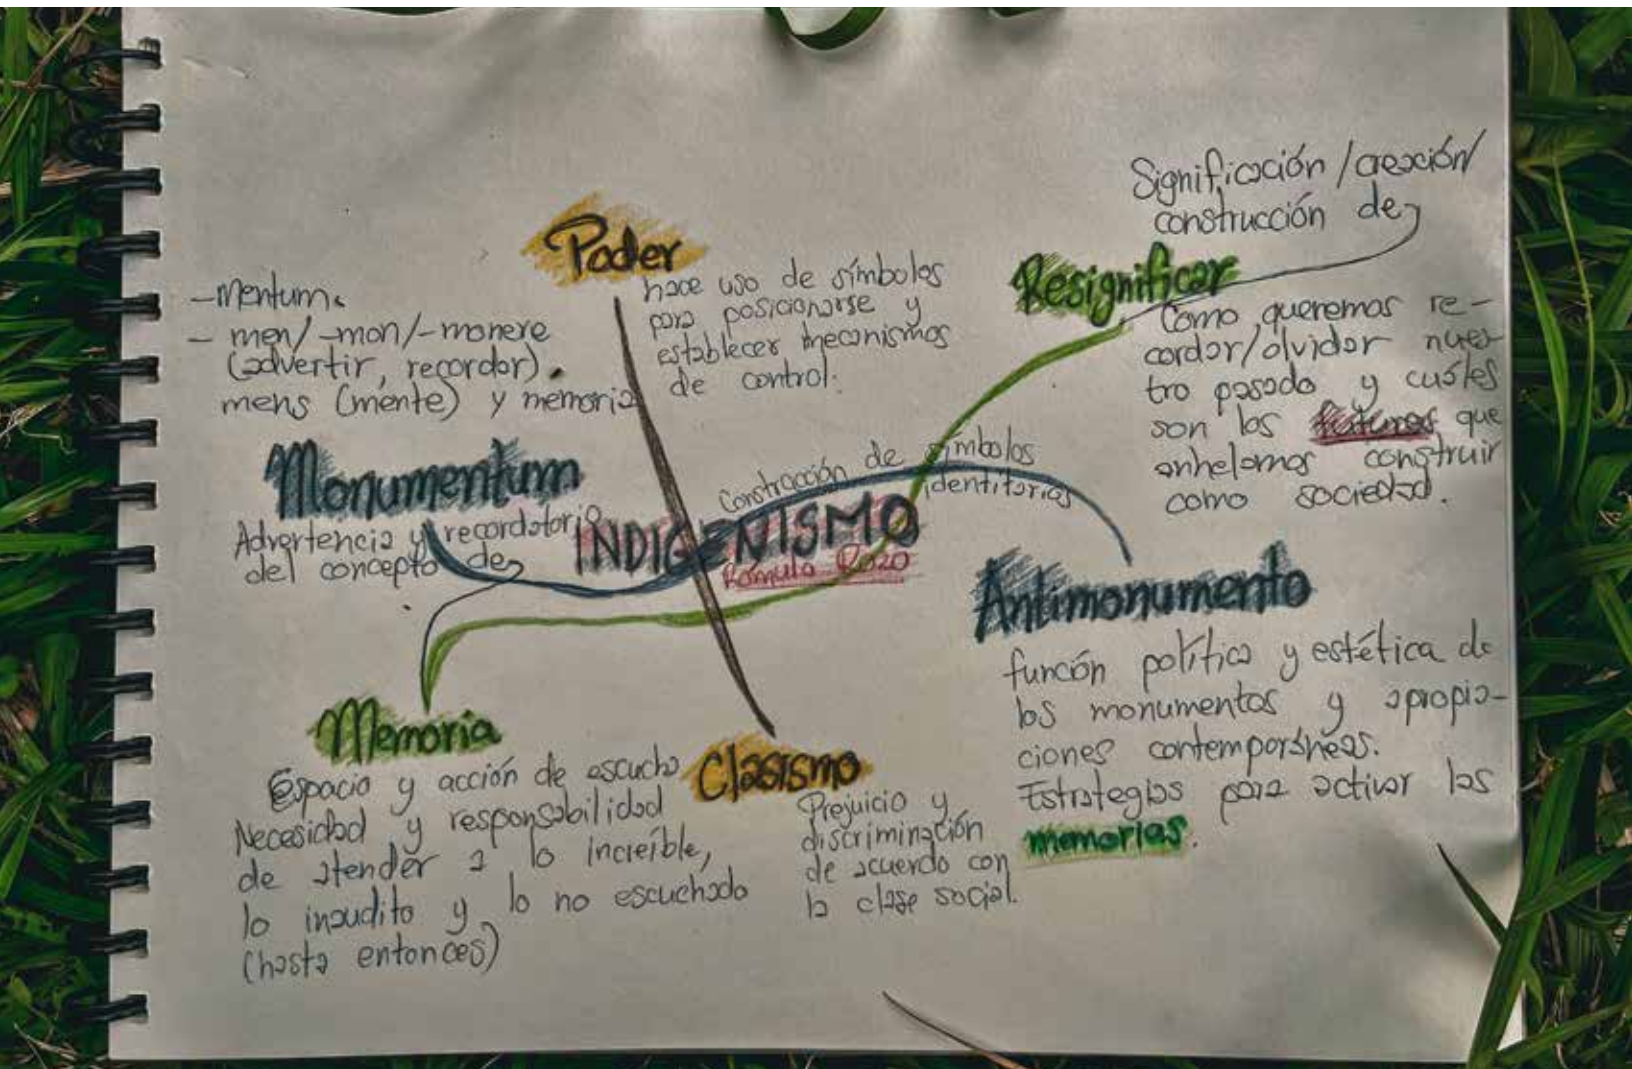 Poder
hace uso de símbolos
para posicionarse y
establecer mecanismos
de control.
Significación/creación/
construcción de
Resignificar
Como queremos re-
cordar/olvidar nues-
tro pasado y cuáles
son los futuros que
anhelamos construir
como sociedad.
-mentum.
- men/-mon/-monere
(advertir, recordar).
mens (mente) y memoria
Monumentum
Advertencia y recordatorio
del concepto de
Construcción de símbolos
identitarios
INDIGENISMO
Rómulo Rozo
Antimonumento
función política y estética de
los monumentos y apropia-
ciones contemporáneas.
Estrategias para activar las
memorias.
Memoria
Espacio y acción de escucha
Necesidad y responsabilidad
de atender a lo increíble,
lo inaudito y lo no escuchado
(hasta entonces)
Clasismo
Prejuicio y
discriminación
de acuerdo con
la clase social.